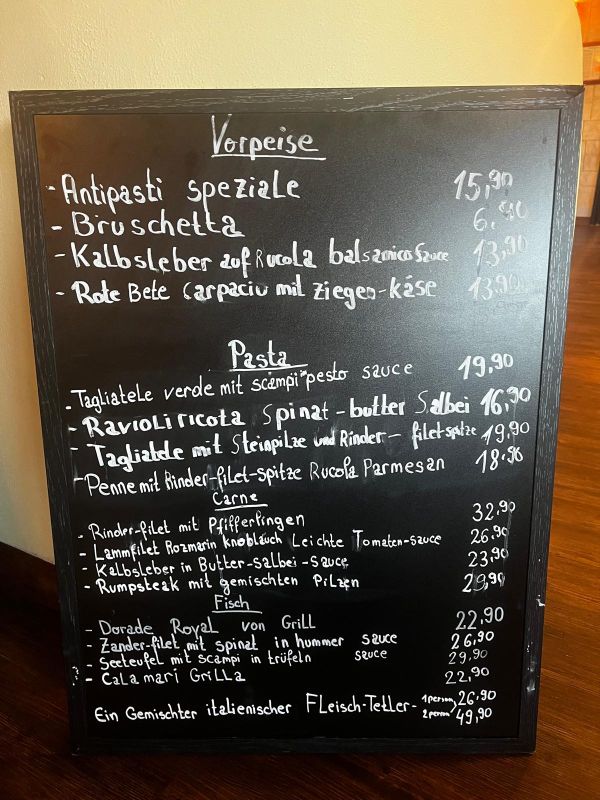 Vorpeise
- Antipasti speziale 15,90
- Bruschetta 6,90
- Kalbsleber auf Rucola balsamico Sauce 13,90
- Rote Bete Carpaciu mit Ziegen-käse 13,90
Pasta
- Tagliatele verde mit scampi pesto sauce 19,90
- Ravioli ricota Spinat-butter Salbei 16,90
- Tagliatele mit Steinpilze und Rinder-filet-spitze 19,90
- Penne mit Rinder-filet-spitze Rucola Parmesan 18,90
Carne
- Rinder-filet mit Pfifferlingen 32,90
- Lammfilet Rozmarin Knoblauch Leichte Tomaten-sauce 26,90
- Kalbsleber in Butter-salbei-sauce 23,90
- Rumpsteak mit gemischten Pilzen 29,90
Fisch
- Dorade Royal von Grill 22,90
- Zander-filet mit spinat in hummer sauce 26,90
- Seeteufel mit scampi in trüfeln sauce 29,90
- Calamari Grilla 22,90
Ein Gemischter italienischer Fleisch-Teller - 1 person 26,90
2 person 49,90